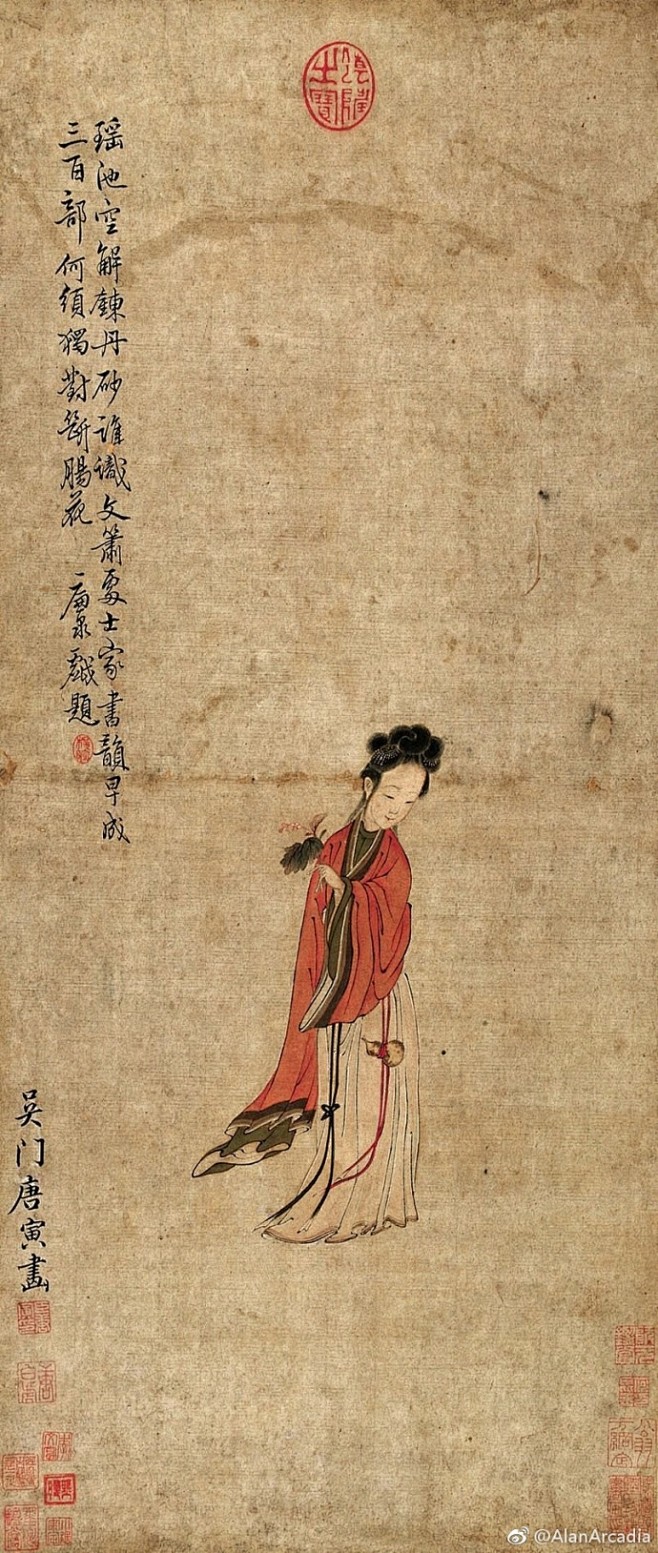 瑶池空解鍊丹砂誰識文簫處士家書韻早成
三百部何須獨對斷腸花 戲題
吴门唐寅畫
@AlanArcadia